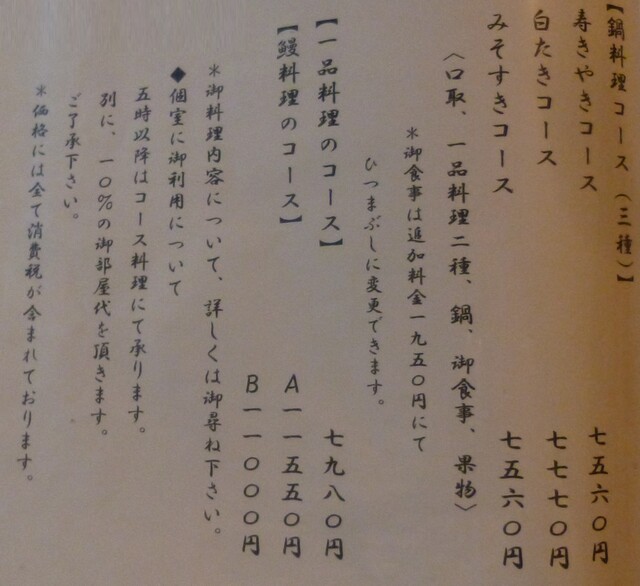 【鍋料理コース(三種)】
寿きやきコース 七五六〇円
白たきコース 七七七〇円
みそすきコース 七五六〇円
〈口取、一品料理二種、鍋、御食事、果物〉
＊御食事は追加料金一九五〇円にて
ひつまぶしに変更できます。
【一品料理のコース】 七九八〇円
【鰻料理のコース】 A 一一五五〇円
B 一一〇〇〇円
＊御料理内容について、詳しくは御尋ね下さい。
◆個室に御利用について
五時以降はコース料理にて承ります。
別に、一〇％の御部屋代を頂きます。
ご了承下さい。
＊価格には全て消費税が含まれております。